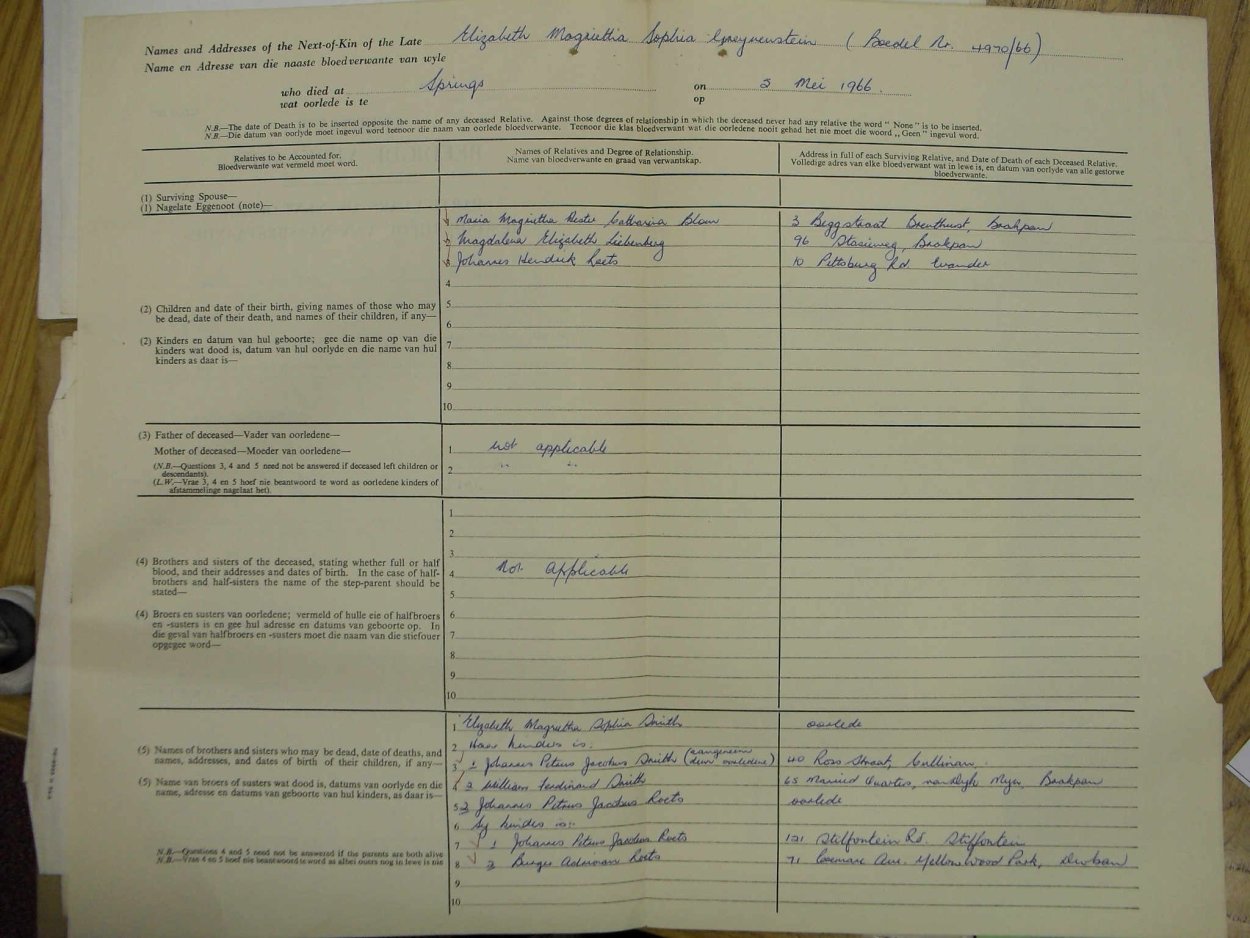 Names and Addresses of the Next-of-Kin of the Late Elizabeth Magrietha Sophia (Boedel Nr. 4970/66)
Name en Adresse van die naaste bloedverwante van wyle
who died at Springs on 2 Mei 1966.
wat oorlede is te op
N.B.—The date of Death is to be inserted opposite the name of any deceased Relative. Against those degrees of relationship in which the deceased never had any relative the word "None" is to be inserted.
N.B.—Die datum van oorlyde moet ingevul word teenoor die naam van oorlede bloedverwante. Teenoor die klas bloedverwant wat die oorledene nooit gehad het nie moet die woord „Geen" ingevul word.
Relatives to be Accounted for.
Bloedverwante wat vermeld moet word.
Names of Relatives and Degree of Relationship.
Name van bloedverwante en graad van verwantskap.
Address in full of each Surviving Relative, and Date of Death of each Deceased Relative.
Volledige adres van elke bloedverwant wat in lewe is, en datum van oorlyde van alle gestorwe
bloedverwante.
(1) Surviving Spouse—
(1) Nagelate Eggenoot (note)—
1 Maria Magrietha Hester Catharina Blom 3 Beggstraat Brenthurst, Brakpan
2 Magdalena Elizabeth Liebenberg 96 Stasieweg, Brakpan
3 Johannes Hendrik Roets 10 Pittsburg Rd. Evander
4
5
6
7
8
9
10
(2) Children and date of their birth, giving names of those who may
be dead, date of their death, and names of their children, if any—
(2) Kinders en datum van hul geboorte; gee die name op van die
kinders wat dood is, datum van hul oorlyde en die name van hul
kinders as daar is—
(3) Father of deceased—Vader van oorledene—
Mother of deceased—Moeder van oorledene—
(N.B.—Questions 3, 4 and 5 need not be answered if deceased left children or
descendants).
(L.W.—Vrae 3, 4 en 5 hoef nie beantwoord te word as oorledene kinders of
afstammelinge nagelaat het).
1 not applicable
2 " "
1
2
3
4 Not applicable
5
6
7
8
9
10
(4) Brothers and sisters of the deceased, stating whether full or half
blood, and their addresses and dates of birth. In the case of half-
brothers and half-sisters the name of the step-parent should be
stated—
(4) Broers en susters van oorledene; vermeld of hulle eie of halfbroers
en -susters is en gee hul adresse en datums van geboorte op. In
die geval van halfbroers en -susters moet die naam van die stiefouer
opgegee word—
(5) Names of brothers and sisters who may be dead, date of deaths, and
names, addresses, and dates of birth of their children, if any—
(5) Name van broers of susters wat dood is, datums van oorlyde en die
name, adresse en datums van geboorte van hul kinders, as daar is—
N.B.—Questions 4 and 5 need not be answered if the parents are both alive
N.B.—Vrae 4 en 5 hoef nie beantwoord te word as albei ouers nog in lewe is nie
1 Elizabeth Magrietha Sophia Smith oorlede
2 Haar kinders is:
3 1 Johannes Petrus Jacobus Smith (aangeneem deur oorledene) 40 Ross Straat, Cullinan.
4 2 William Ferdinand Smith 65 Married Quarters, Myn, Brakpan
5 2 Johannes Petrus Jacobus Roets oorlede
6 Sy kinders is:-
7 1 Johannes Petrus Jacobus Roets 121 Stilfontein Rd. Stilfontein
8 2 Burger Roets 71 Ave. Yellow Wood Park, Durban
9
10